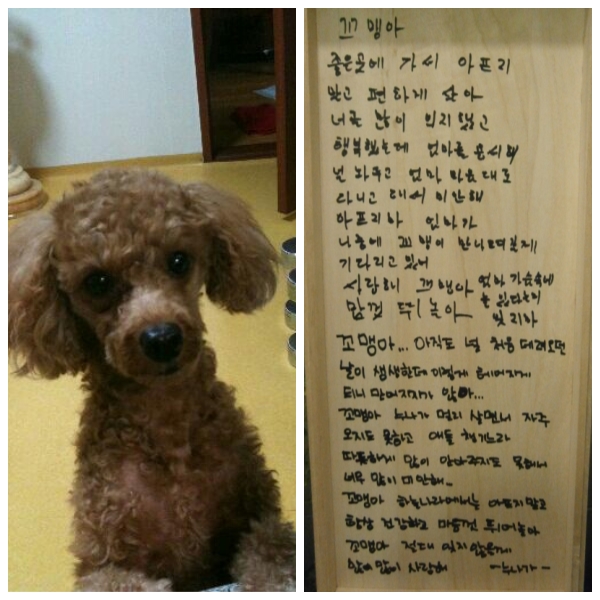 꼬맹아
좋은곳에 가서 아프지
말고 편하게 살아
너를 많이 의지했고
행복했는데
널 놔두고 엄마 마음대로
다니고 해서 미안해
아프지마 엄마가
나중에 꼬맹이 만나러갈게
기다리고 있어
사랑해 꼬맹아 엄마 가슴속에
맘껏 뛰 놀아
꼬맹아... 아직도 널 처음 데려오던
날이 생생한데 이렇게 헤어지게
되니 믿어지지가 않아...
꼬맹아 누나가 멀리 살면서 자주
오지도 못하고 애들 챙기느라
따뜻하게 많이 안아주지도 못해서
너무 많이 미안해..
꼬맹아 하늘나라에서는 아프지말고
항상 건강하고 마음껏 뛰어놀아
꼬맹아 절대 잊지않을게
많이많이 사랑해 -누나가-